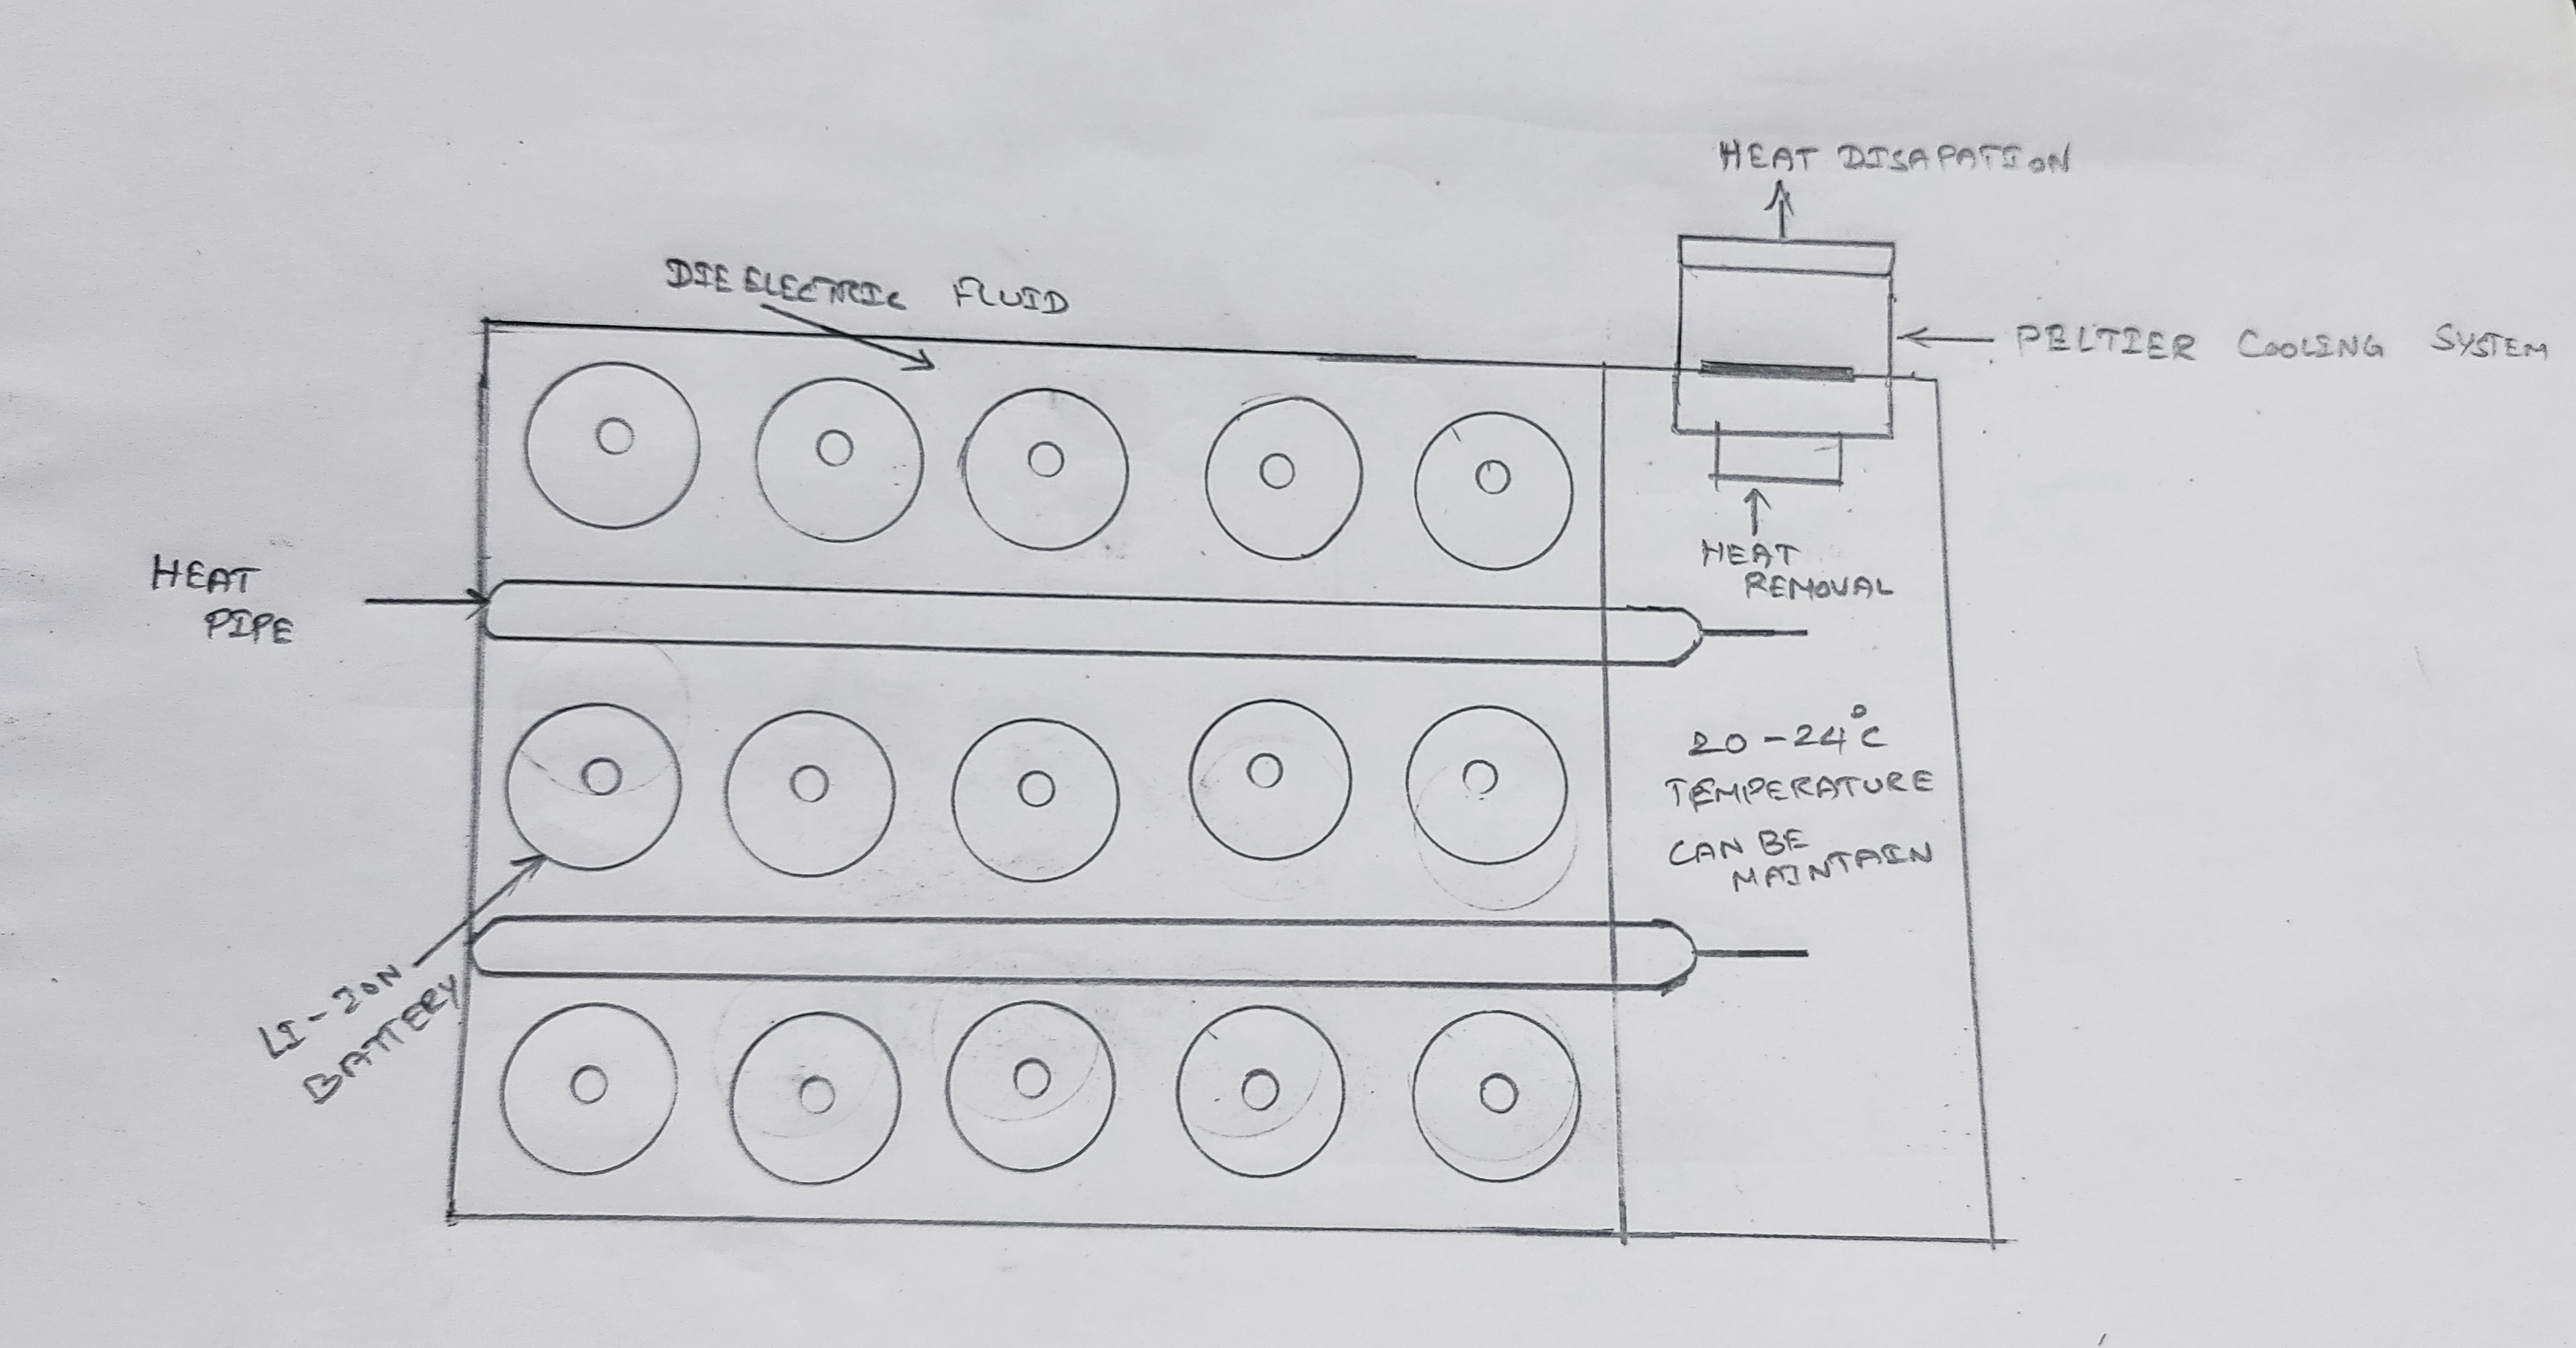 HEAT DISAPATION
DIELECTRIC FLUID
PELTIER COOLING SYSTEM
HEAT
REMOVAL
HEAT
PIPE
20-24°C
TEMPERATURE
CAN BE
MAINTAIN
LI-ION
BATTERY